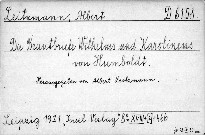 Leitzmann, Albert
Die Brautbriefe Wilhelms und Karolinens
von Humboldt.
Herausgegeben von Albert Leitzmann.
Leipzig 1921. Insel Verlag 8°